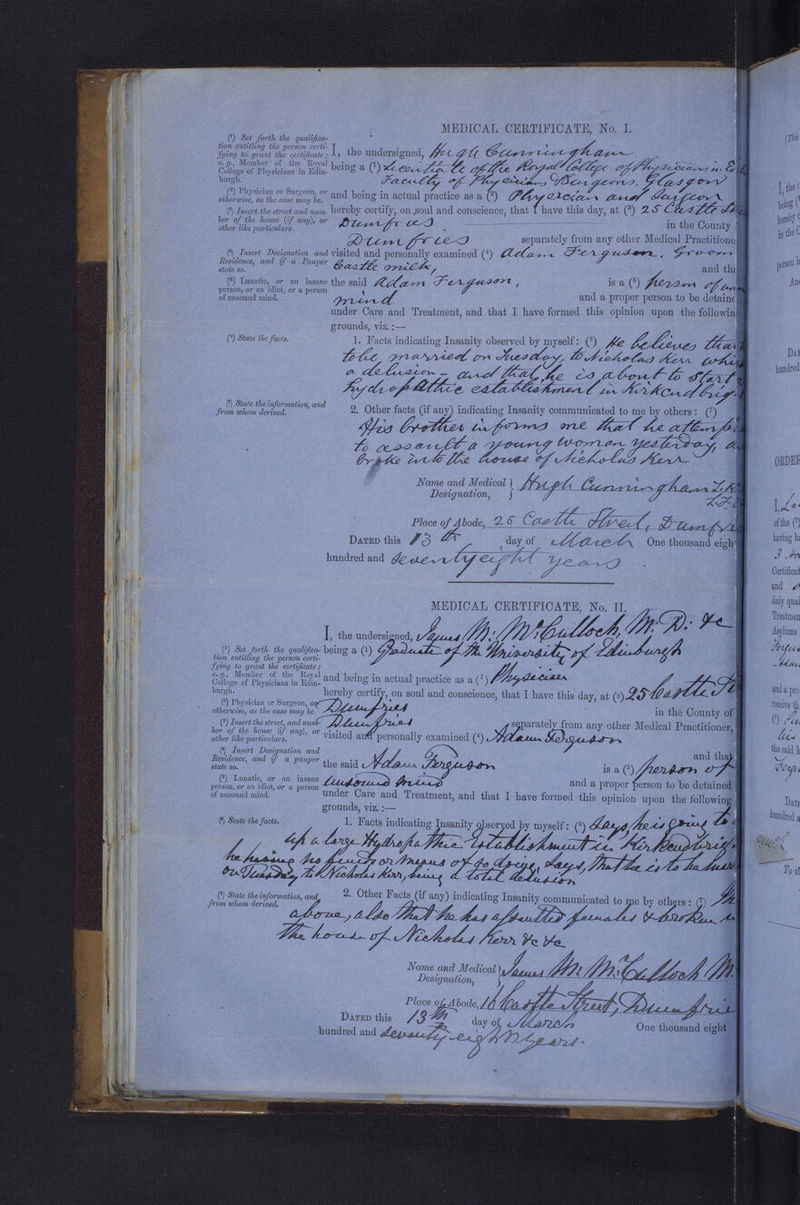 MEDICAL CERTIFICATE, No. I.
(1) Set forth the qualifica-
tion entitling the person certi-
fying to grant the certificate;
e. g., Member of the Royal
College of Physicians in Edin-
burgh.
I, the undersigned, Hugh Cunningham
being a (1) Licentiate of the Royal College of Physicians in Ed
Faculty of Physicians & Surgeons, Glasgow
(2) Physician or Surgeon, or
otherwise, as the case may be.
and being in actual practice as a (2) Physician and Surgeon
(3) Insert the street and num-
ber of the house (if any), or
other like particulars.
hereby certify, on soul and conscience, that I have this day, at (3) 25 Castle St
Dumfries in the County
Dumfries separately from any other Medical Practitione
(4) Insert Designation and
Residence, and if a Pauper
state so.
visited and personally examined (4) Adam Ferguson, Groom
Castle and tha
(5) Lunatic, or an insane
person, or an idiot, or a person
of unsound mind.
the said Adam Ferguson, is a (5) person of un
mind and a proper person to be detaine
under Care and Treatment, and that I have formed this opinion upon the followin
grounds, viz.:—
(6) State the facts.
1. Facts indicating Insanity observed by myself: (6) He believes that
to be married on Tuesday, to Nicholas Kerr whi
a delusion - and that he is about to start a
hydropathic establishment in Kirkcudbrig
(7) State the information, and
from whom derived.
2. Other facts (if any) indicating Insanity communicated to me by others: (7)
His brother informs me that he attemp
to assault a young woman yesterday, a
broke into the house of Nicholas Kerr
Name and Medical Designation, } Hugh Cunningham L.R.
L.F.
Place of Abode, 25 Castle Street, Dumfri
DATED this 13th day of March One thousand eigh
hundred and seventy eight years.
MEDICAL CERTIFICATE, No. II.
I, the undersigned, James M. McCulloch, M.D. &c
(1) Set forth the qualifica-
tion entitling the person certi-
fying to grant the certificate;
e. g., Member of the Royal
College of Physicians in Edin-
burgh.
being a (1) Graduate of the University of Edinburgh
and being in actual practice as a (2) Physician
(2) Physician or Surgeon, or
otherwise, as the case may be.
hereby certify, on soul and conscience, that I have this day, at (3) 25 Castle St
Dumfries in the County of
(3) Insert the street, and num-
ber of the house (if any), or
other like particulars.
Dumfries separately from any other Medical Practitioner,
visited and personally examined (4) Adam Ferguson
(4) Insert Designation and
Residence, and if a pauper
state so.
and that
the said Adam Ferguson is a (5) person of
(5) Lunatic, or an insane
person, or an idiot, or a person
of unsound mind.
unsound mind and a proper person to be detained
under Care and Treatment, and that I have formed this opinion upon the following
grounds, viz.:—
(6) State the facts.
1. Facts indicating Insanity observed by myself: (6) Says he is going to
up a large Hydropathic Establishment in Kirkcudbrig
he having no funds or means of so doing, Says, that he is to be marr
on Tuesday, to Nicholas Kerr, being a total delusion
(7) State the information, and
from whom derived.
2. Other Facts (if any) indicating Insanity communicated to me by others: (7) Th
above, also that he has assaulted females & broken in
the house of Nicholas Kerr &c &c
Name and Medical Designation, } James M. McCulloch M.
Place of Abode, 16 Castle Street, Dumfrie
DATED this 13th day of March One thousand eight
hundred and seventy-eight years.
I, the
being (
hereby
in the C
person i
An
DAT
hundred
ORDER
of the (
having h
Certificat
and
duly qual
Treatmen
Asylums
and a pro
receive th
the said
DATE
hundred a
To th